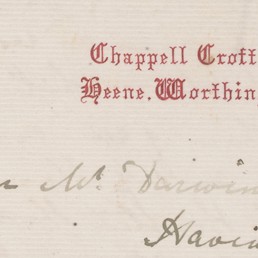 Chappell Croft
Heene. Worthin
Mr Darwin
Havi